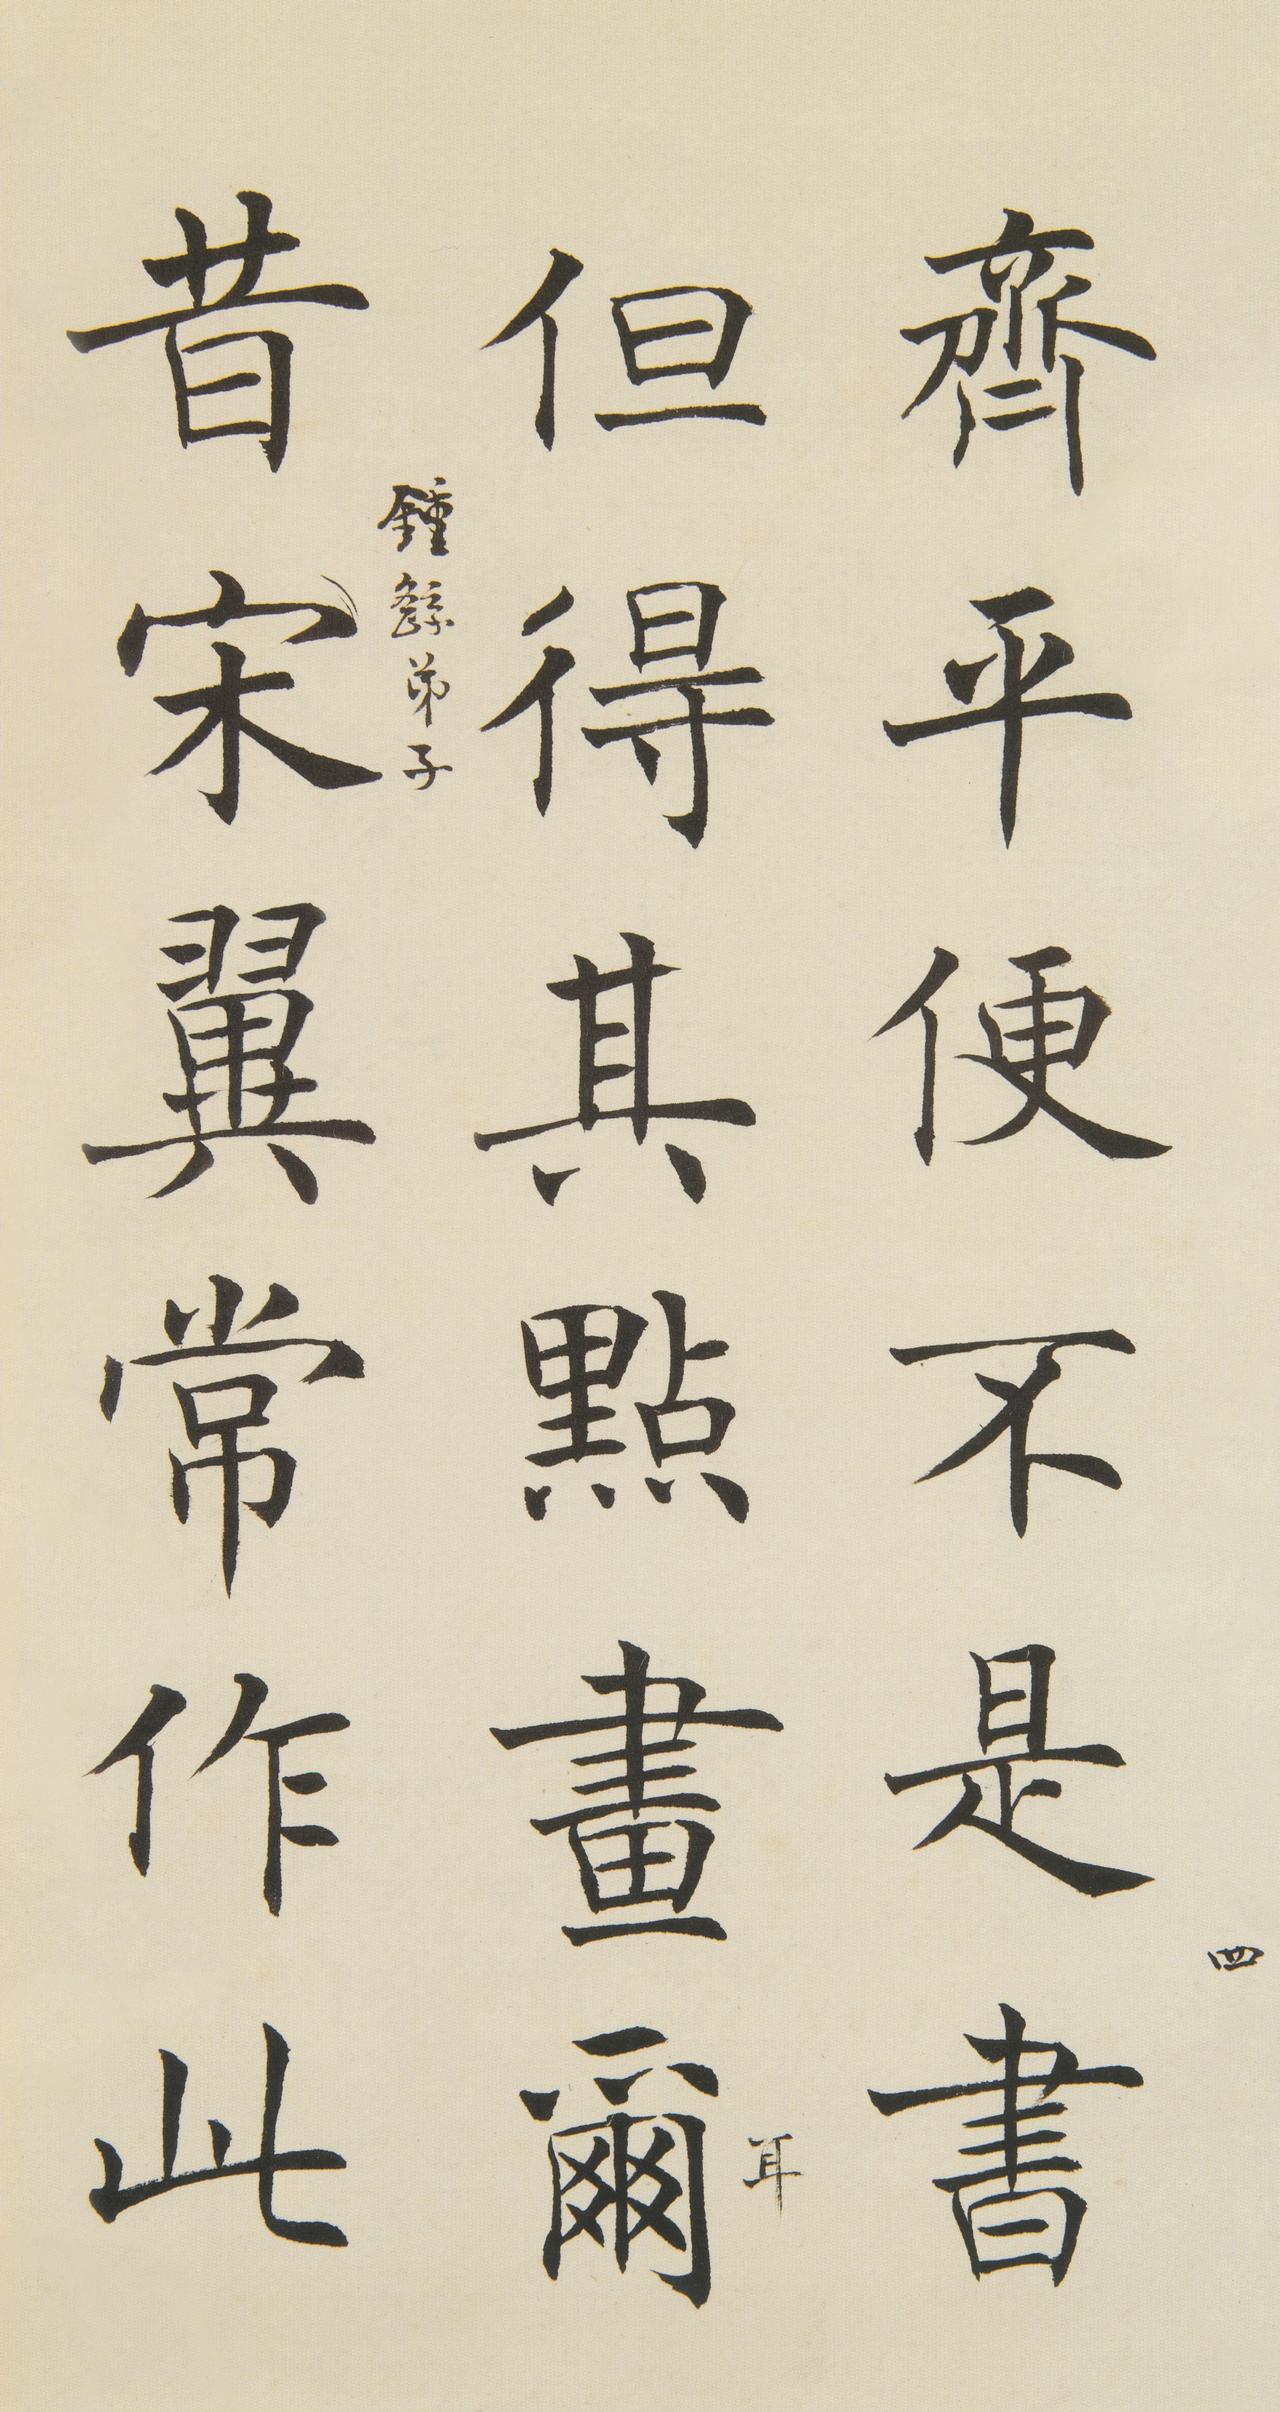 四
齊平便不是書
耳
但得其點畫爾
鍾繇弟子
昔宋翼常作此